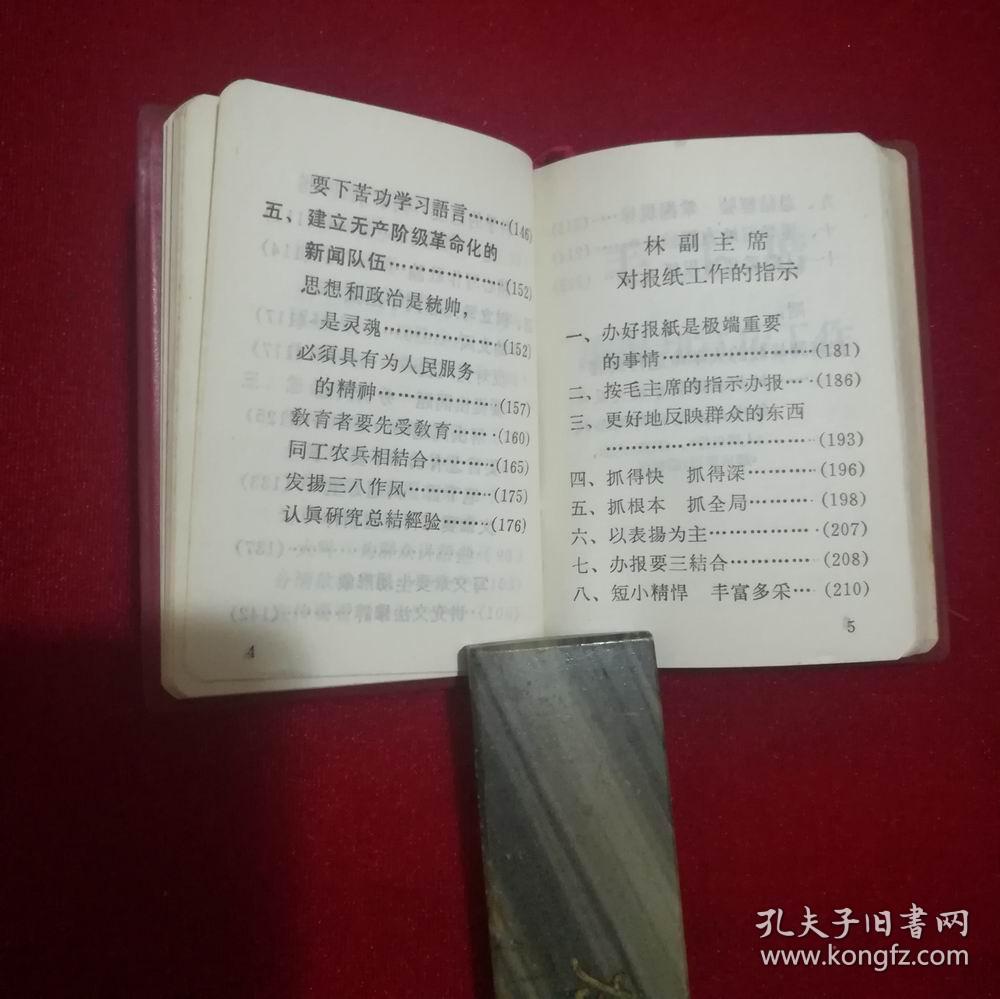 要下苦功学习語言………(146)
五、建立无产阶级革命化的
新闻队伍………………(152)
思想和政治是統帅，
是灵魂………………(152)
必須具有为人民服务
的精神………………(157)
敎育者要先受敎育………(160)
同工农兵相結合…………(165)
发揚三八作风……………(175)
认眞研究总結經驗………(176)
4
林副主席
对报纸工作的指示
一、办好报紙是极端重要
的事情…………………(181)
二、按毛主席的指示办报…(186)
三、更好地反映群众的东西
…………………………(193)
四、抓得快 抓得深…………(196)
五、抓根本 抓全局…………(198)
六、以表揚为主……………(207)
七、办报要三結合…………(208)
八、短小精悍 丰富多采…(210)
5
孔夫子旧書网
www.kongfz.com